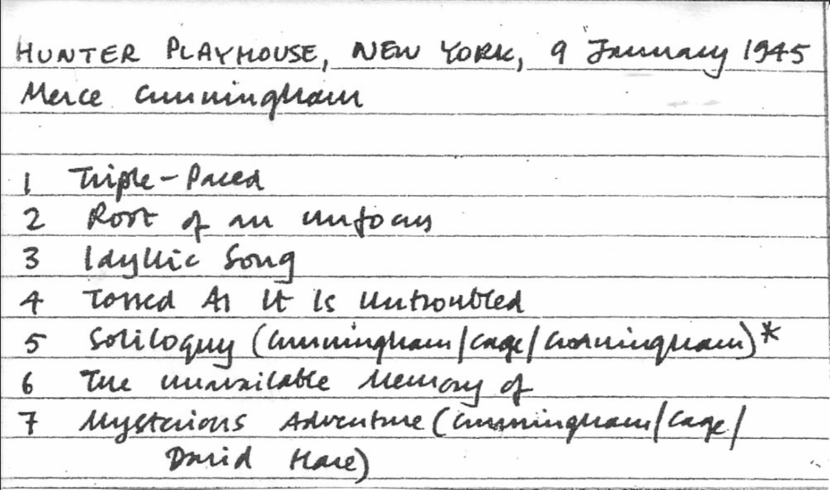 HUNTER PLAYHOUSE, NEW YORK, 9 January 1945
Merce Cunningham
1 Triple-Paced
2 Root of an unfocus
3 Idyllic Song
4 Tossed As It Is Untroubled
5 Soliloquy (Cunningham/Cage/Cunningham)*
6 The unavailable Memory of
7 Mysterious Adventure (Cunningham/Cage/
David Hare)